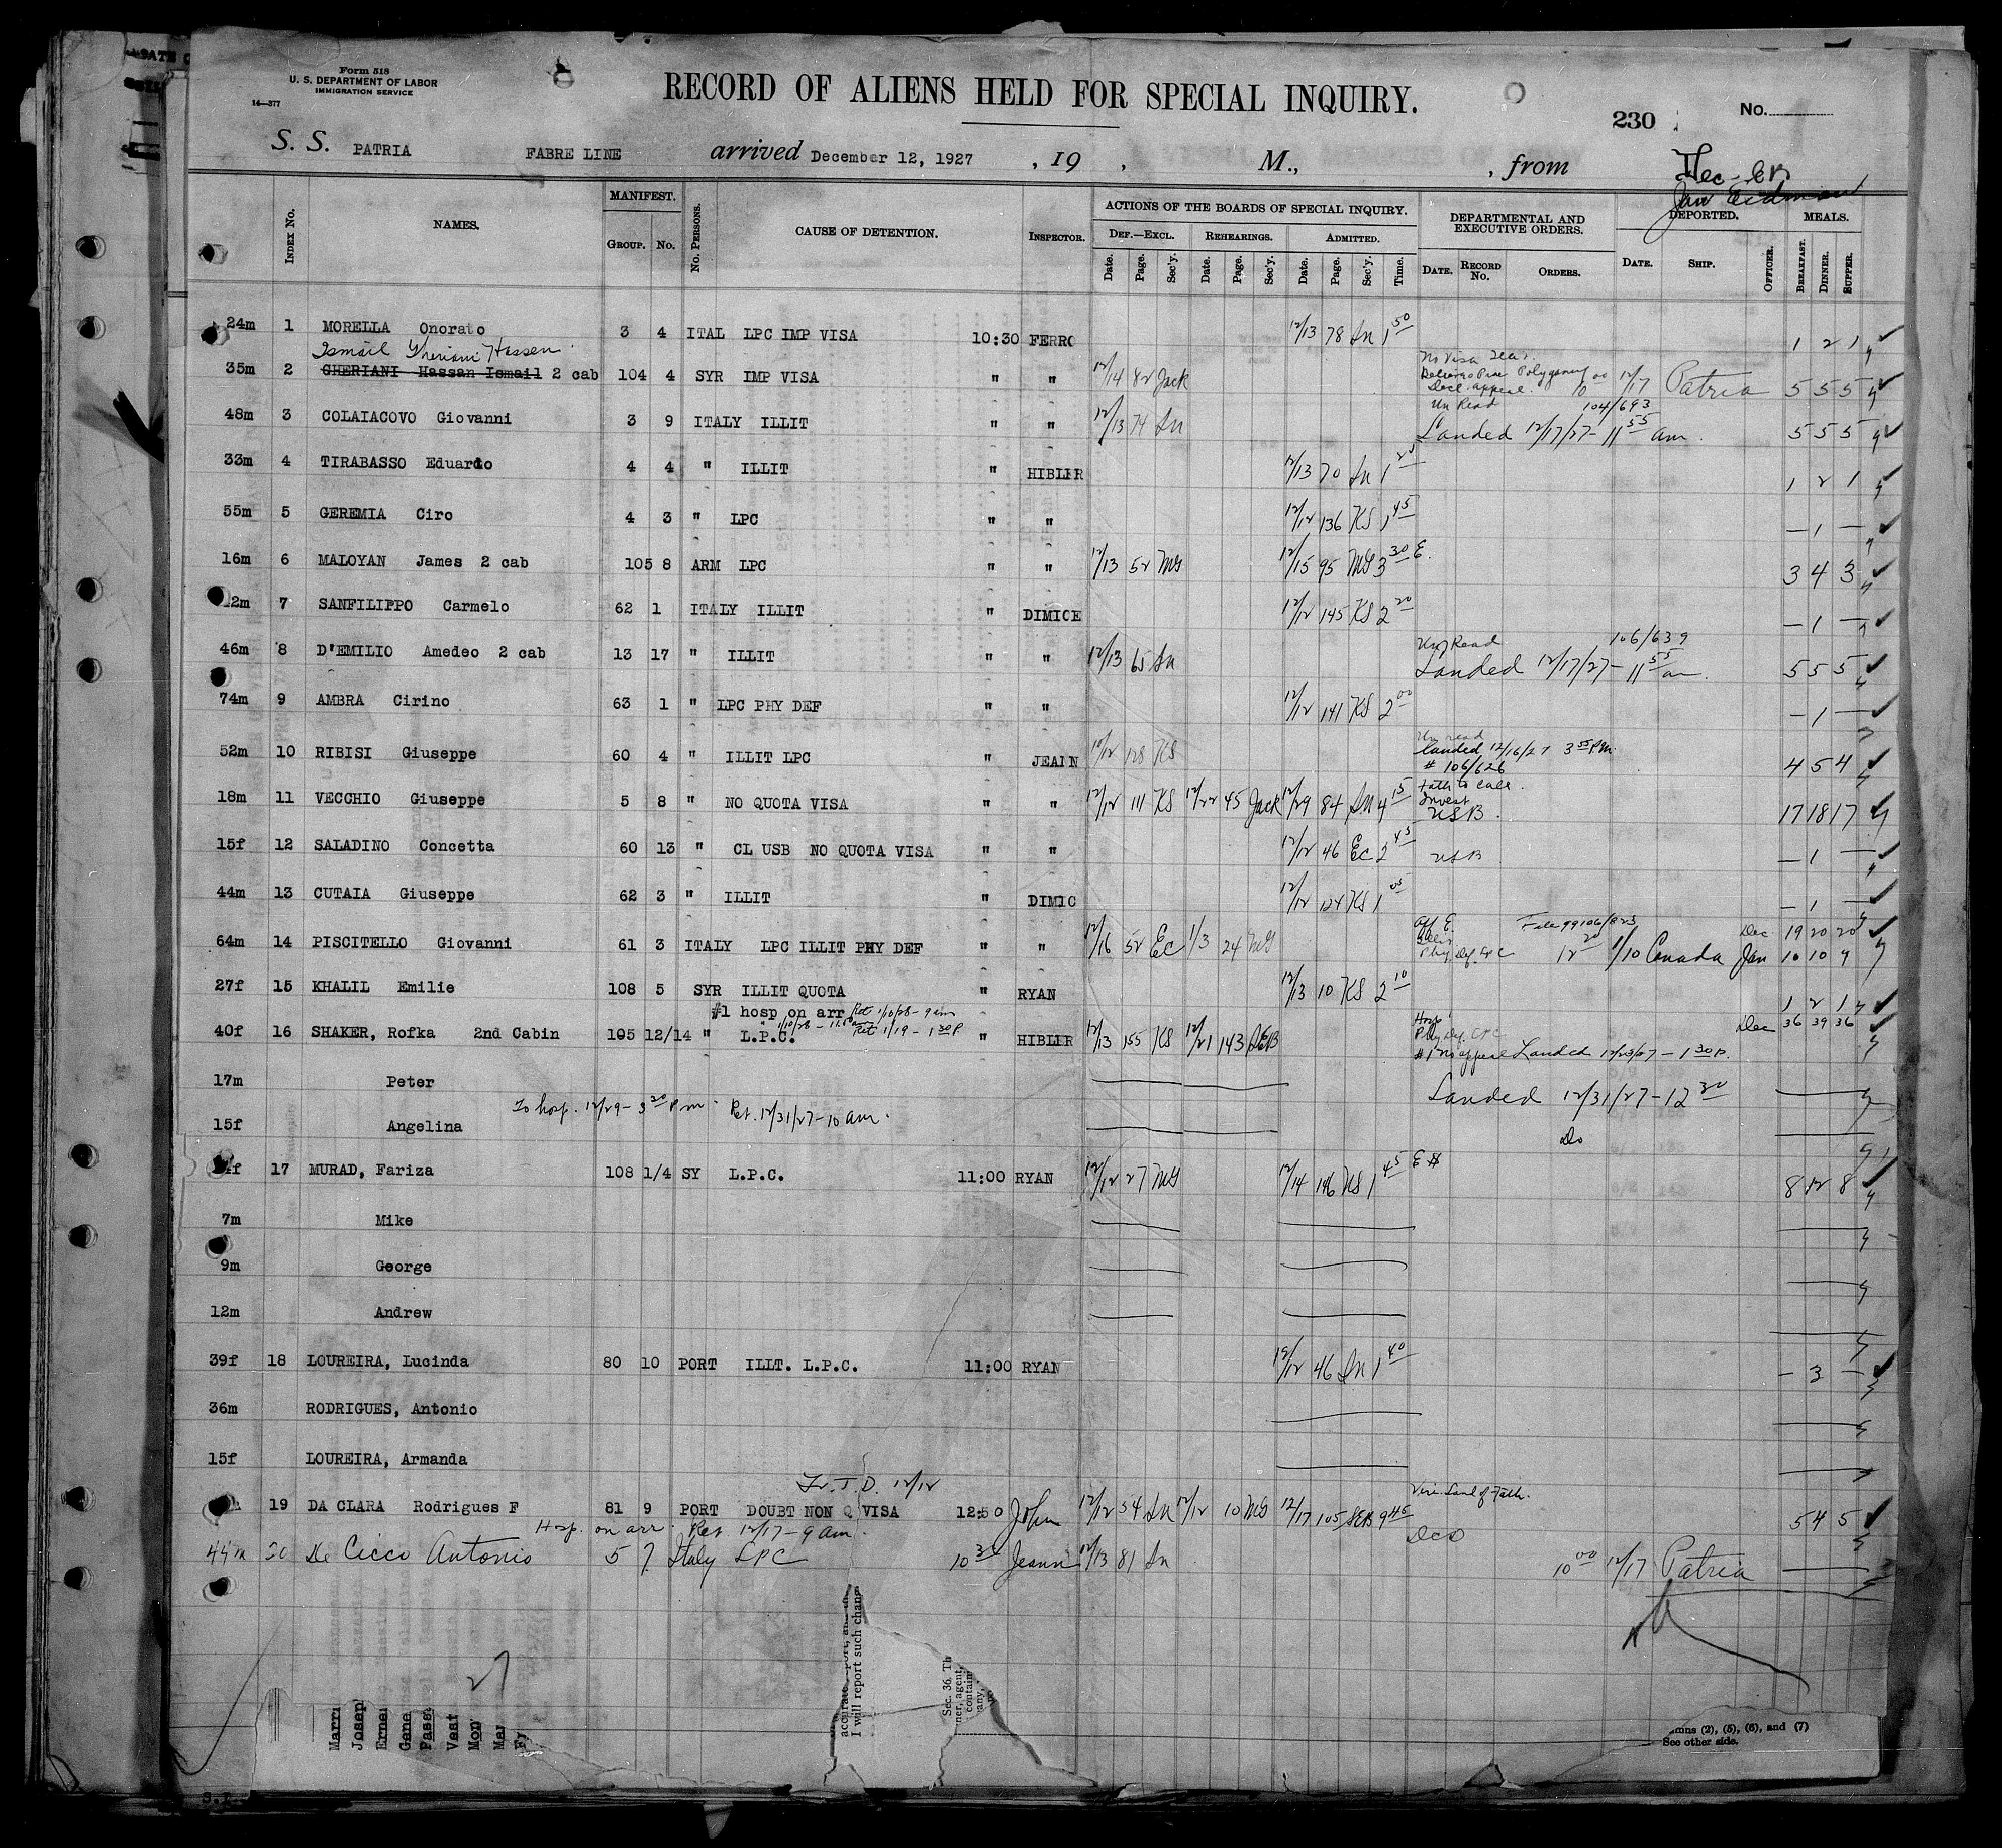 Form 518
U. S. DEPARTMENT OF LABOR
IMMIGRATION SERVICE
14—377
RECORD OF ALIENS HELD FOR SPECIAL INQUIRY.
230
No.
S. S. PATRIA FABRE LINE arrived December 12, 1927 , 19 , M., , from
INDEX No. NAMES. MANIFEST. GROUP. No. No. PERSONS. CAUSE OF DETENTION. INSPECTOR. ACTIONS OF THE BOARDS OF SPECIAL INQUIRY. DEF.—EXCL. Date. Page. Sec'y. REHEARINGS. Date. Page. Sec'y. ADMITTED. Date. Page. Sec'y. Time. DEPARTMENTAL AND EXECUTIVE ORDERS. DATE. RECORD No. ORDERS. DEPORTED. DATE. SHIP. OFFICER. MEALS. BREAKFAST. DINNER. SUPPER.
24m 1 MORELLA Onorato 3 4 ITAL LPC IMP VISA 10:30 FERRO 12/13 78 Sn 1 50 1 2 1
Ismail Gheriani Hassen
35m 2 GHERIANI Hassan Ismail 2 cab 104 4 SYR IMP VISA " " 12/14 82 Jack 12/17 Patria 5 5 5
Un Read 104/693
48m 3 COLAIACOVO Giovanni 3 9 ITALY ILLIT " " 12/13 74 Sn Landed 12/17/27 - 11 55 am. 5 5 5
33m 4 TIRABASSO Eduardo 4 4 " ILLIT " HIBLER 12/13 70 Sn 1 1 2 1
55m 5 GEREMIA Ciro 4 3 " LPC " " 12/12 136 KS 1 45 — 1 —
16m 6 MALOYAN James 2 cab 105 8 ARM LPC " " 12/13 52 MG 12/15 95 MG 3 30 E. 3 4 3
2m 7 SANFILIPPO Carmelo 62 1 ITALY ILLIT " DIMICE 12/12 145 KS 2 20 — 1 —
Un Read 106/639
46m 8 D'EMILIO Amedeo 2 cab 13 17 " ILLIT " " 12/13 65 Sn Landed 12/17/27 - 11 55 am. 5 5 5
74m 9 AMBRA Cirino 63 1 " LPC PHY DEF " " 12/12 141 KS 2 00 — 1 —
Un read
52m 10 RIBISI Giuseppe 60 4 " ILLIT LPC " JEAN 12/12 128 KS Landed 12/16/27 3 55 PM. # 106/626 4 5 4
18m 11 VECCHIO Giuseppe 5 8 " NO QUOTA VISA " " 12/12 111 KS 12/22 45 Jack 12/29 84 Sn 4 15 USB 17 18 17
15f 12 SALADINO Concetta 60 13 " CL USB NO QUOTA VISA " " 12/12 46 Ec 2 45 USB — 1 —
44m 13 CUTAIA Giuseppe 62 3 " ILLIT " DIMIC 12/12 124 KS 1 05 — 1 —
File 99106/823 Dec. 19 20 20
64m 14 PISCITELLO Giovanni 61 3 ITALY LPC ILLIT PHY DEF " " 12/16 52 Ec 1/3 24 MG Phy. Def. LPC 1/10 Canada Jan 10 10 9
27f 15 KHALIL Emilie 108 5 SYR ILLIT QUOTA " RYAN 12/13 10 KS 2 10 1 2 1
#1 hosp on arr Ret 1/10/28 - 9 am
40f 16 SHAKER, Rofka 2nd Cabin 105 12/14 " L.P.C. Ret 1/19 - 1 30 P. " HIBLER 12/13 155 KS 12/21 143 SEB Hosp Phy Def. LPC #1 no appeal Landed 12/23/27 - 1 30 P. Dec 36 39 36
17m Peter Landed 12/31/27 - 12 30
To hosp. 12/29 - 3 20 Pm. Ret. 12/31/27 - 10 am.
15f Angelina Do
4f 17 MURAD, Fariza 108 1/4 SY L.P.C. 11:00 RYAN 12/12 27 MG 12/14 146 KS 1 45 8 12 8
7m Mike
9m George
12m Andrew
39f 18 LOUREIRA, Lucinda 80 10 PORT ILLT. L.P.C. 11:00 RYAN 12/12 46 Sn 1 40 — 3 —
36m RODRIGUES, Antonio
15f LOUREIRA, Armanda
Tr. T.D. 12/12
19 DA CLARA Rodrigues F 81 9 PORT DOUBT NON Q VISA 12:50 John 12/12 54 Sn 12/12 10 MG 12/17 105 SEB 9 45 5 4 5
Hosp. on arr. Ret 12/17 - 9 am.
44m 20 De Cicco Antonio 5 7 Italy LPC 10 30 Jeann 12/13 81 Sn 10 00 12/17 Patria
accurate
I will report such chang
Sec. 36. Th
ner, agent,
contain
pany,
Marri
Josep
Erne
Gene
Pass
Vest
Mon
Ma
Fy
mns (2), (5), (6), and (7)
See other side.